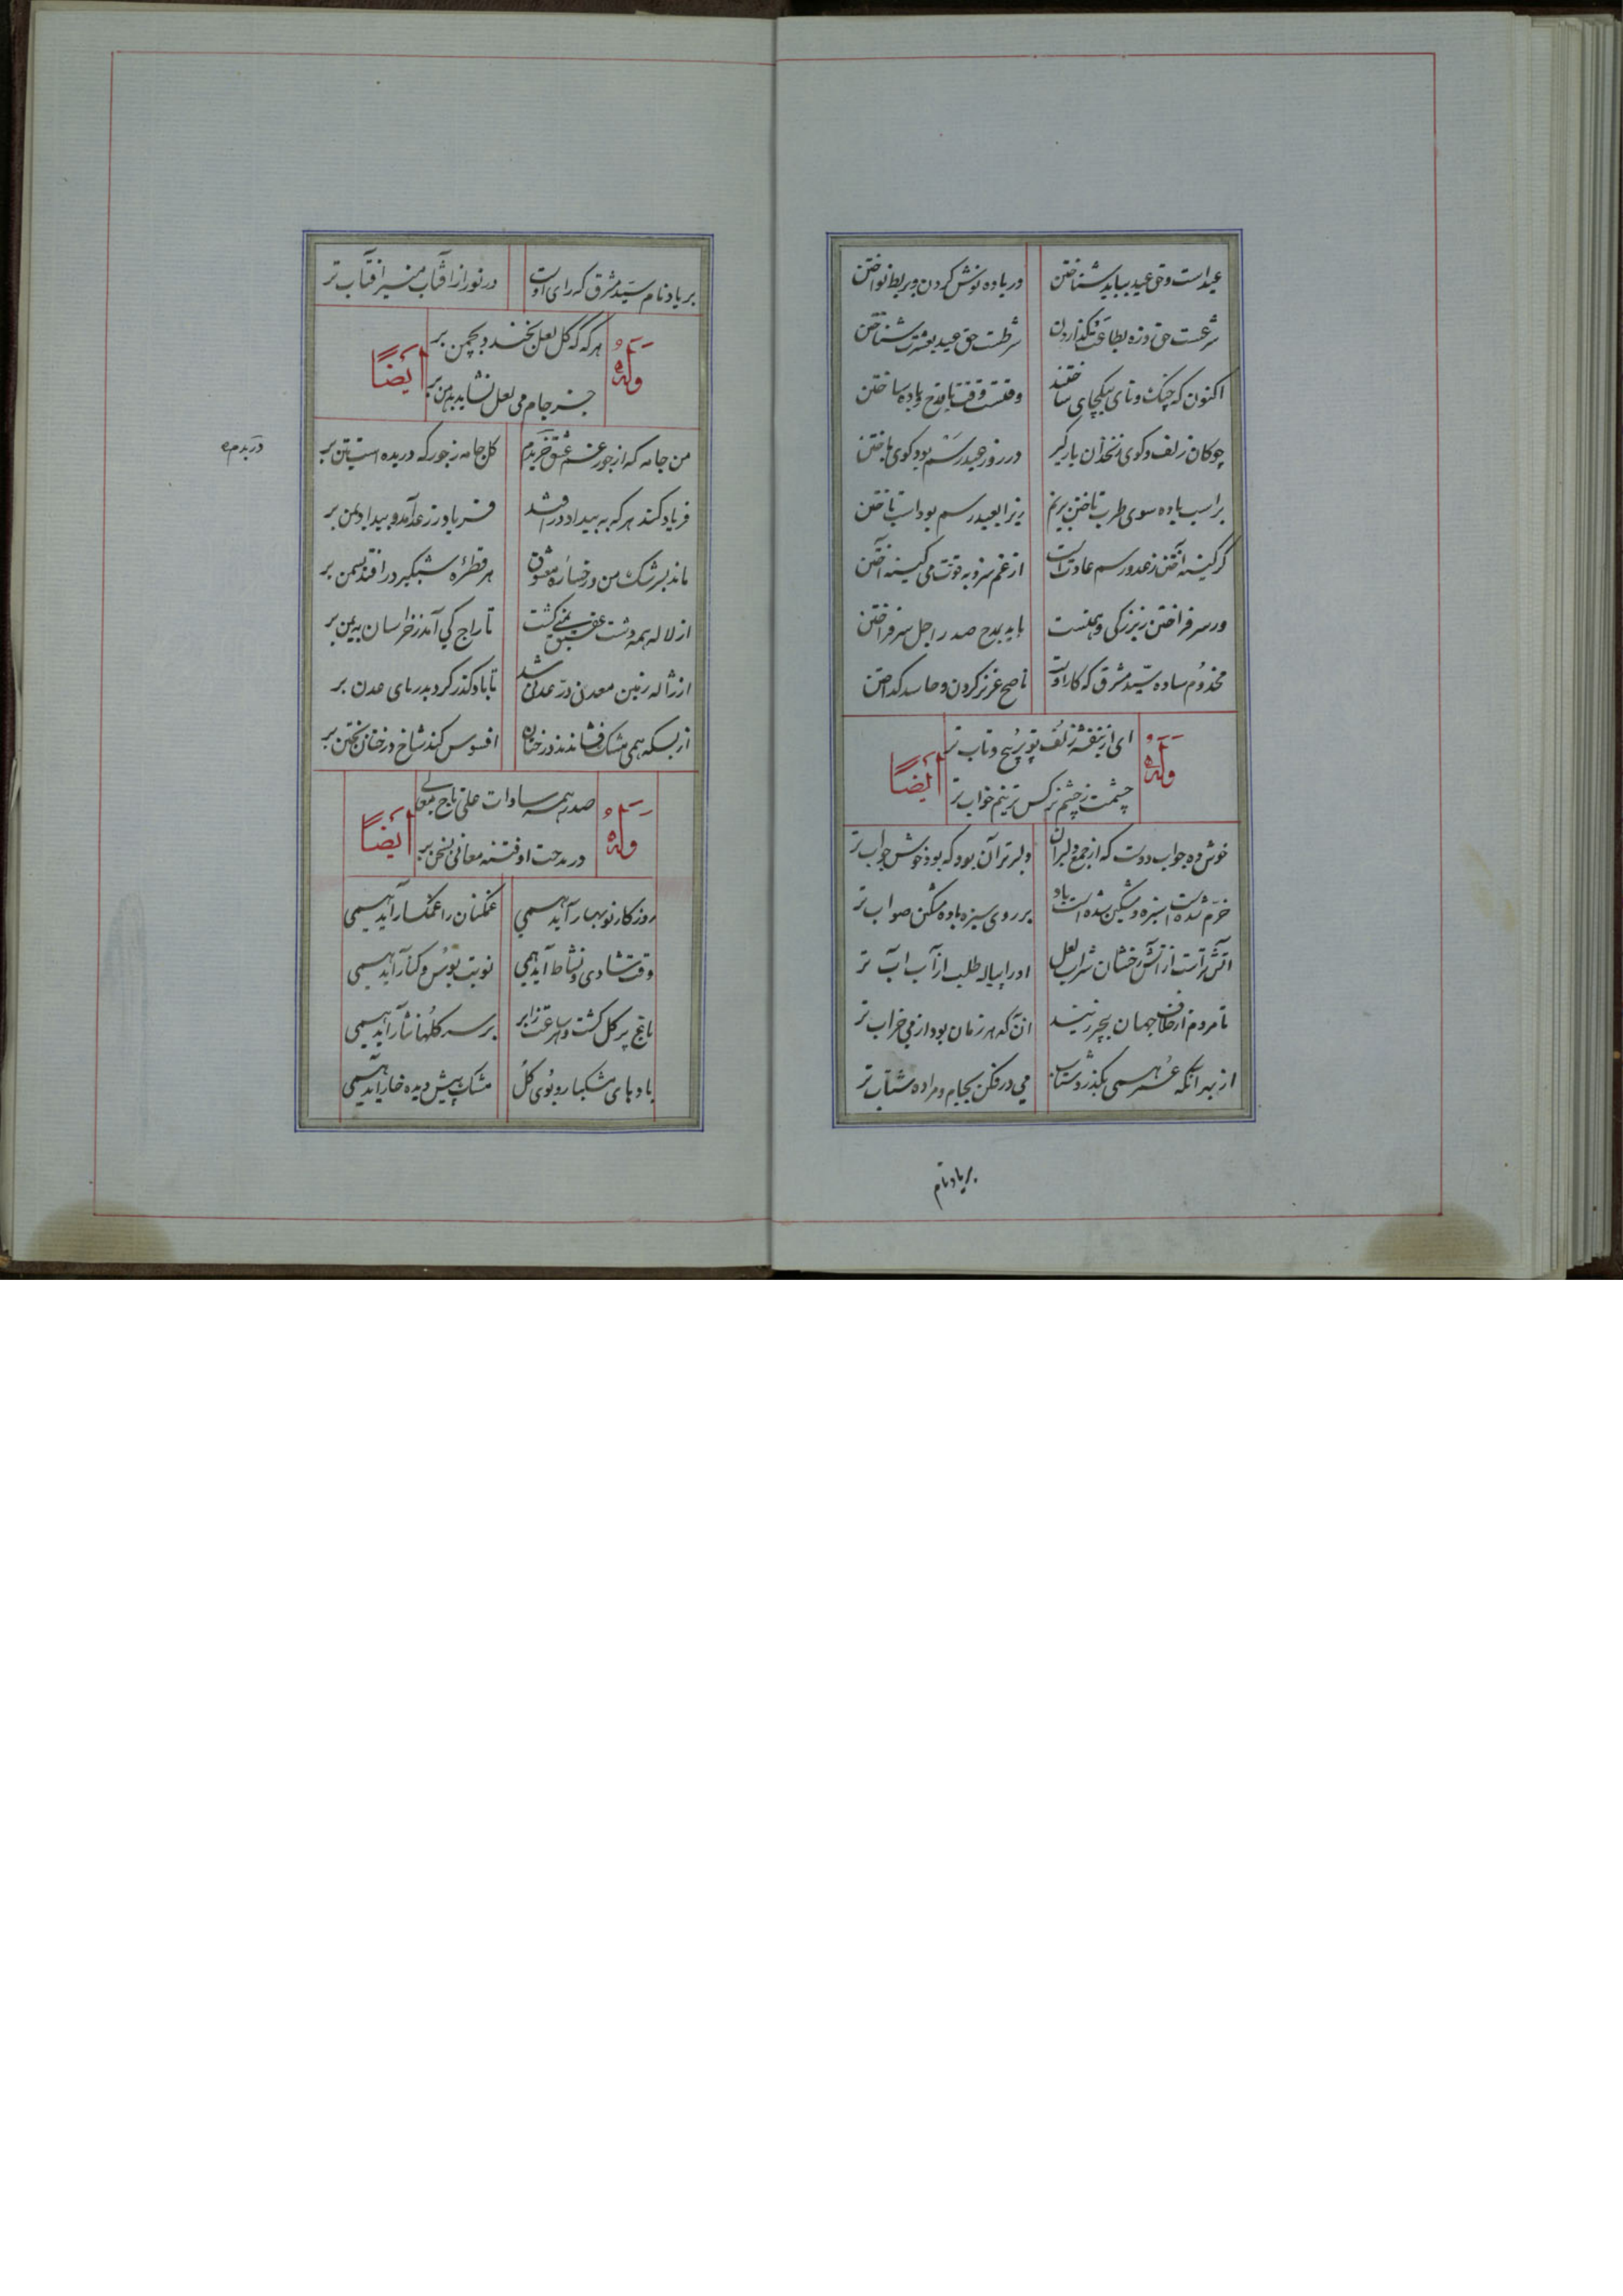 عیداست وحق عید بباید شناختن در باده نوش کردن و بربط نواختن
شرعست حق روزه بطاعت گذاردن شرطست حق عید بعشرت شناختن
اکنون که چنک ونای بیکجای ساختند وقتست وقت با قدح و باده ساختن
چوکان زلف وکوی زنخدان یار کیر در روز عید رسم بود کوی باختن
بر اسب باده سوی طرب تاختن بریم زیرا بعید رسم بود اسب تاختن
کر کینه آختن ز عدو رسم عادتست از غم سزد به قوت می کینه آختن
ور سر فراختن ز بزرکی و همتست باید بمدح صدر اجل سر فراختن
مخدوم ساده سید مشرق که کار اوست ناصح عزیز کردن و حاسد کداختن
وله ایضاً
ای از بنفشه زلف تو پرپیچ و تاب تر
چشمت ز چشم نرکس تر نیم خواب تر
خوش ده جواب دوست که از جمع دلبران دلبر تر آن بود که بود خوش جواب تر
خرم شدست سبزه و مشکین شدست باد بر روی سبزه باده مشکین صواب تر
آتش تراست از آتش رخشان شراب لعل او را پیاله طلب از آب آب تر
تا مردم از خلاف جهان بیخبر زیند آن به که هر زمان بود از می خراب تر
از بهر آنکه عمر همی بکذرد شتاب می در فکن بجام و مرا ده شتاب تر
بر یاد نام
بر یاد نام سید مشرق که رای اوست در نور از آفتاب منیر آفتاب تر
وله ایضاً
هر که که کل لعل بخندد بچمن بر
جز جام می لعل نشاید بدهن بر
من جامه که از جور غم عشق خریدم کل جامه ز جور که دریده است بتن بر
دریدم
فریاد کند هر که به بیداد در افتد فریاد ز رعد آمد و بیداد بمن بر
ماند بسرشک من و رخساره معشوق هر قطره شبکیر در افتد بسمن بر
از لاله همه دشت عقیق یمنی کشت تاراج کی آمد ز خراسان به یمن بر
از ژاله زمین معدن در عدنی شد تا باد کذر کرد بدریای عدن بر
از بسکه همی مشک فشاندند درختان افسوس کند شاخ درختان بختن بر
وله ایضاً
صدر همه سادات علی تاج معالی
در مدحت او فتنه معانی بسخن بر
روز کار نوبهار آید همی غمکنان را غمکسار آید همی
وقت شادی و نشاط آید همی نوبت بوس و کنار آید همی
باغ پر کل کشت و هر ساعت ز ابر بر سر کلها نثار آید همی
باد بای مشکبار و بوی کل مشک پیش دیده خار آید همی